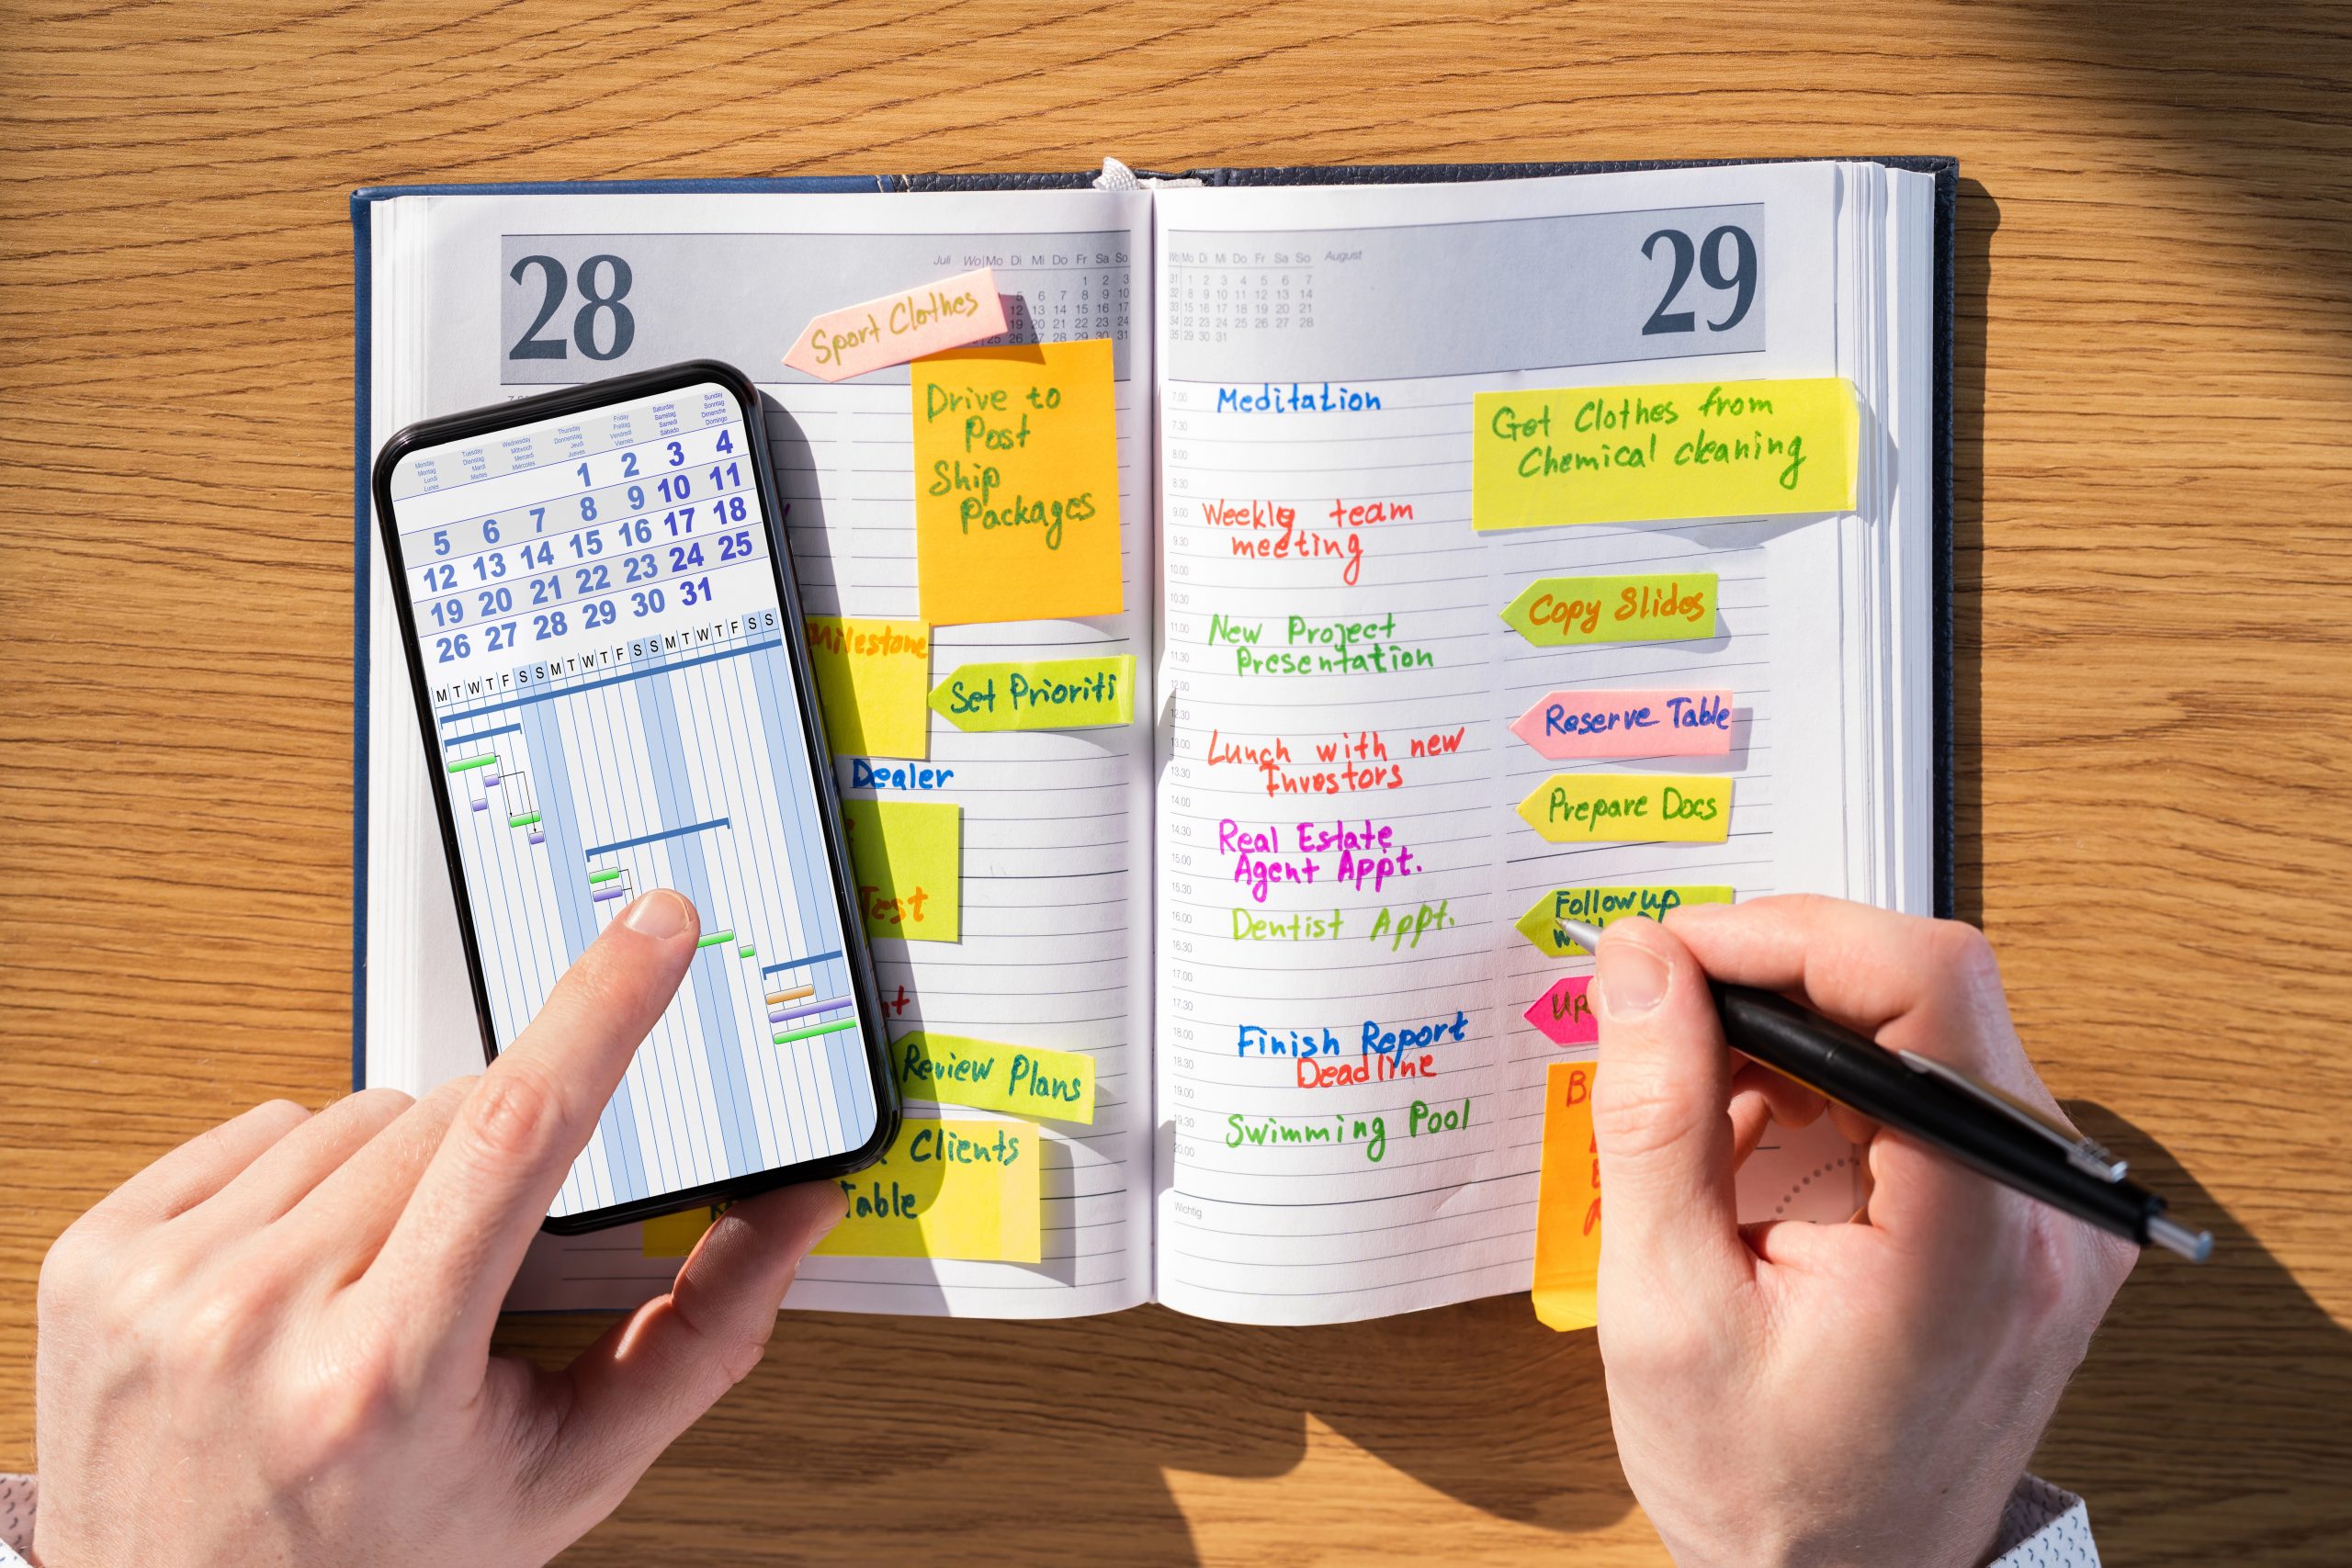 28
Juli Wo Mo Di Mi Do Fr Sa So
1 2 3
5 6 7 8 9 10
12 13 14 15 16 17
19 20 21 22 23 24
25 26 27 28 29 30 31
Sport Clothes
Drive to
Post
Ship
Packages
Milestone
Set Prioriti
Dealer
Test
Review Plans
Clients
Table
Monday Tuesday Wednesday Thursday Friday Saturday Sunday
Montag Dienstag Mittwoch Donnerstag Freitag Samstag Sonntag
Lundi Mardi Mercredi Jeudi Vendredi Samedi Dimanche
Lunes Martes Miércoles Jueves Viernes Sábado Domingo
1 2 3 4
5 6 7 8 9 10 11
12 13 14 15 16 17 18
19 20 21 22 23 24 25
26 27 28 29 30 31
M T W T F S S M T W T F S S M T W T F S S
Wo Mo Di Mi Do Fr Sa So August
31 1 2 3 4 5 6 7
32 8 9 10 11 12 13 14
33 15 16 17 18 19 20 21
34 22 23 24 25 26 27 28
35 29 30 31
29
7.00 Meditation
7.30
8.00
8.30
9.00 Weekly team
9.30 meeting
10.00
10.30
11.00 New Project
11.30 Presentation
12.00
12.30
13.00 Lunch with new
13.30 Investors
14.00
14.30 Real Estate
15.00 Agent Appt.
15.30
16.00 Dentist Appt.
16.30
17.00
17.30
18.00 Finish Report
18.30 Deadline
19.00
19.30 Swimming Pool
20.00
Wichtig
Get Clothes from
Chemical cleaning
Copy Slides
Reserve Table
Prepare Docs
Follow up